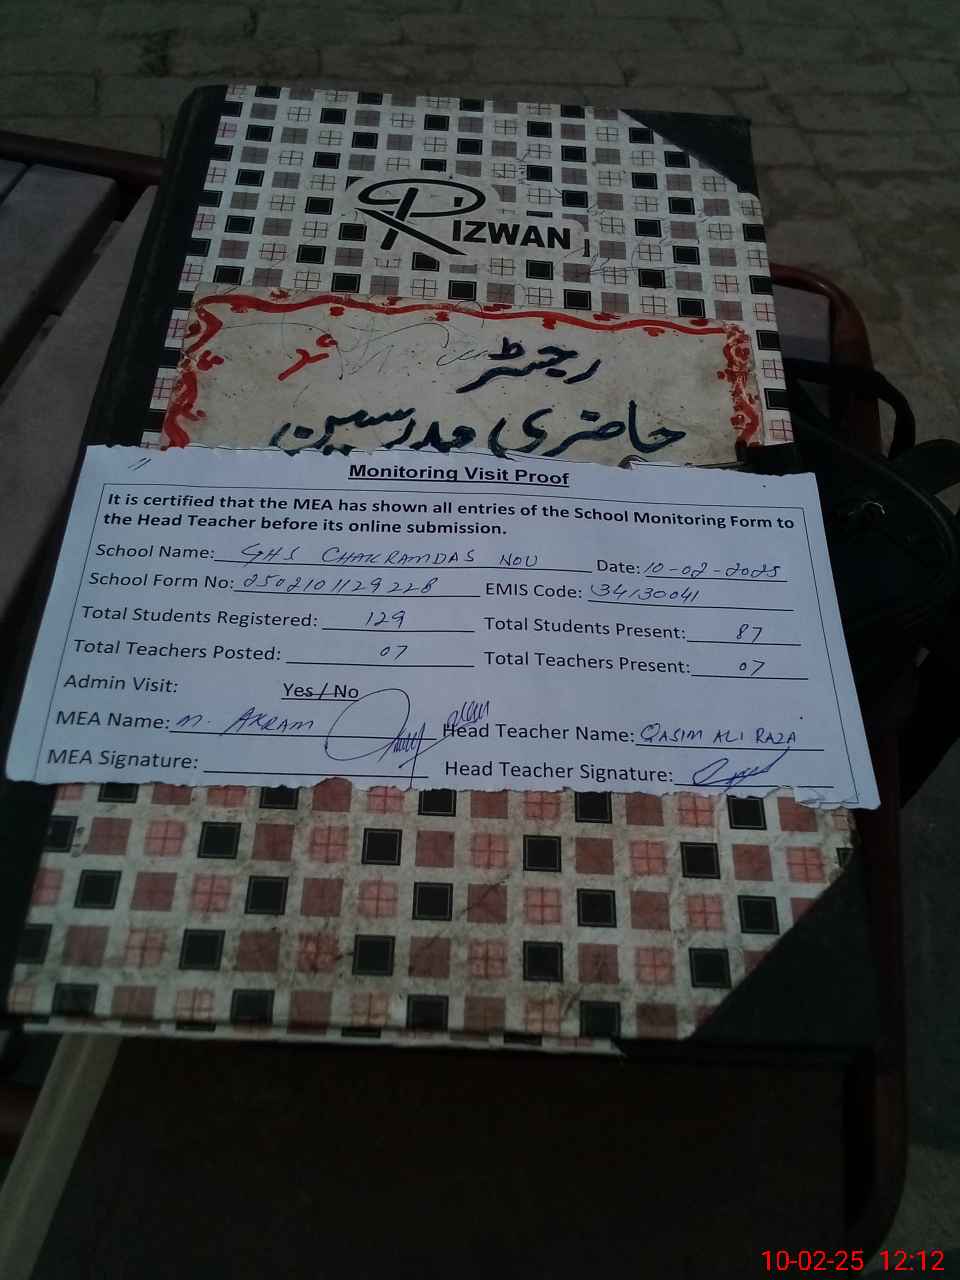 RIZWAN
رجسٹر
حاضری مدرسین
Monitoring Visit Proof
It is certified that the MEA has shown all entries of the School Monitoring Form to
the Head Teacher before its online submission.
School Name: GHS CHAKRAMDAS NOU Date: 10-02-2025
School Form No: 0502101129228 EMIS Code: 34130041
Total Students Registered: 129 Total Students Present: 87
Total Teachers Posted: 07 Total Teachers Present: 07
Admin Visit: Yes / No
MEA Name: M. AKRAM Head Teacher Name: QASIM ALI RAZA
MEA Signature: Head Teacher Signature:
10-02-25 12:12